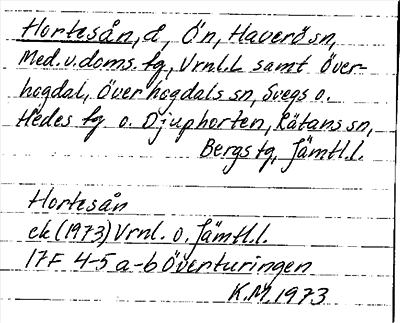 Hortesån, å, Ön, Haverö sn,
Med.v.doms. fg, Vrnl.L samt Över-
hogdal, Överhogdals sn, Svegs o.
Hedes fg o. Djuphorten, Rätans sn,
Bergs fg, Jämtl.l.
Hortesån
ek (1973) Vrnl. o. Jämtl.l.
17F 4-5 a-b Överturingen
K.M. 1973